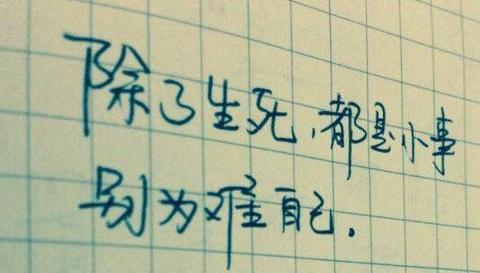 除了生死，都是小事
别为难自己.